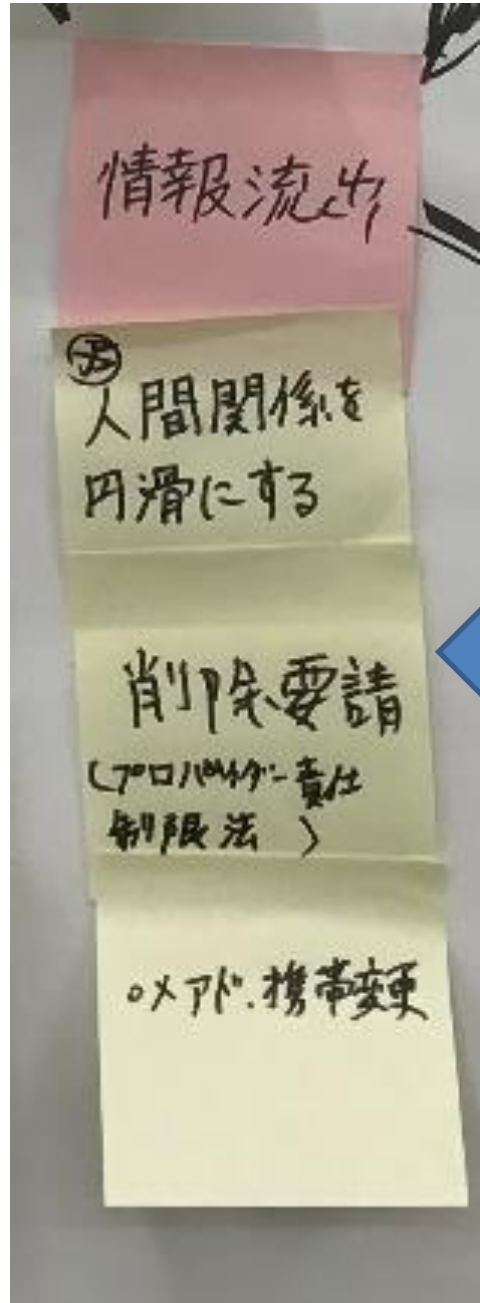 情報流出
人間関係を
円滑にする
削除要請
(プロバイダー責任
制限法)
○メアド.携帯変更